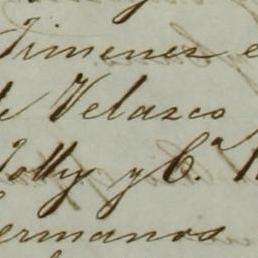 Jimenes e
de Velazco
Jolly y C.ª
Hermanos